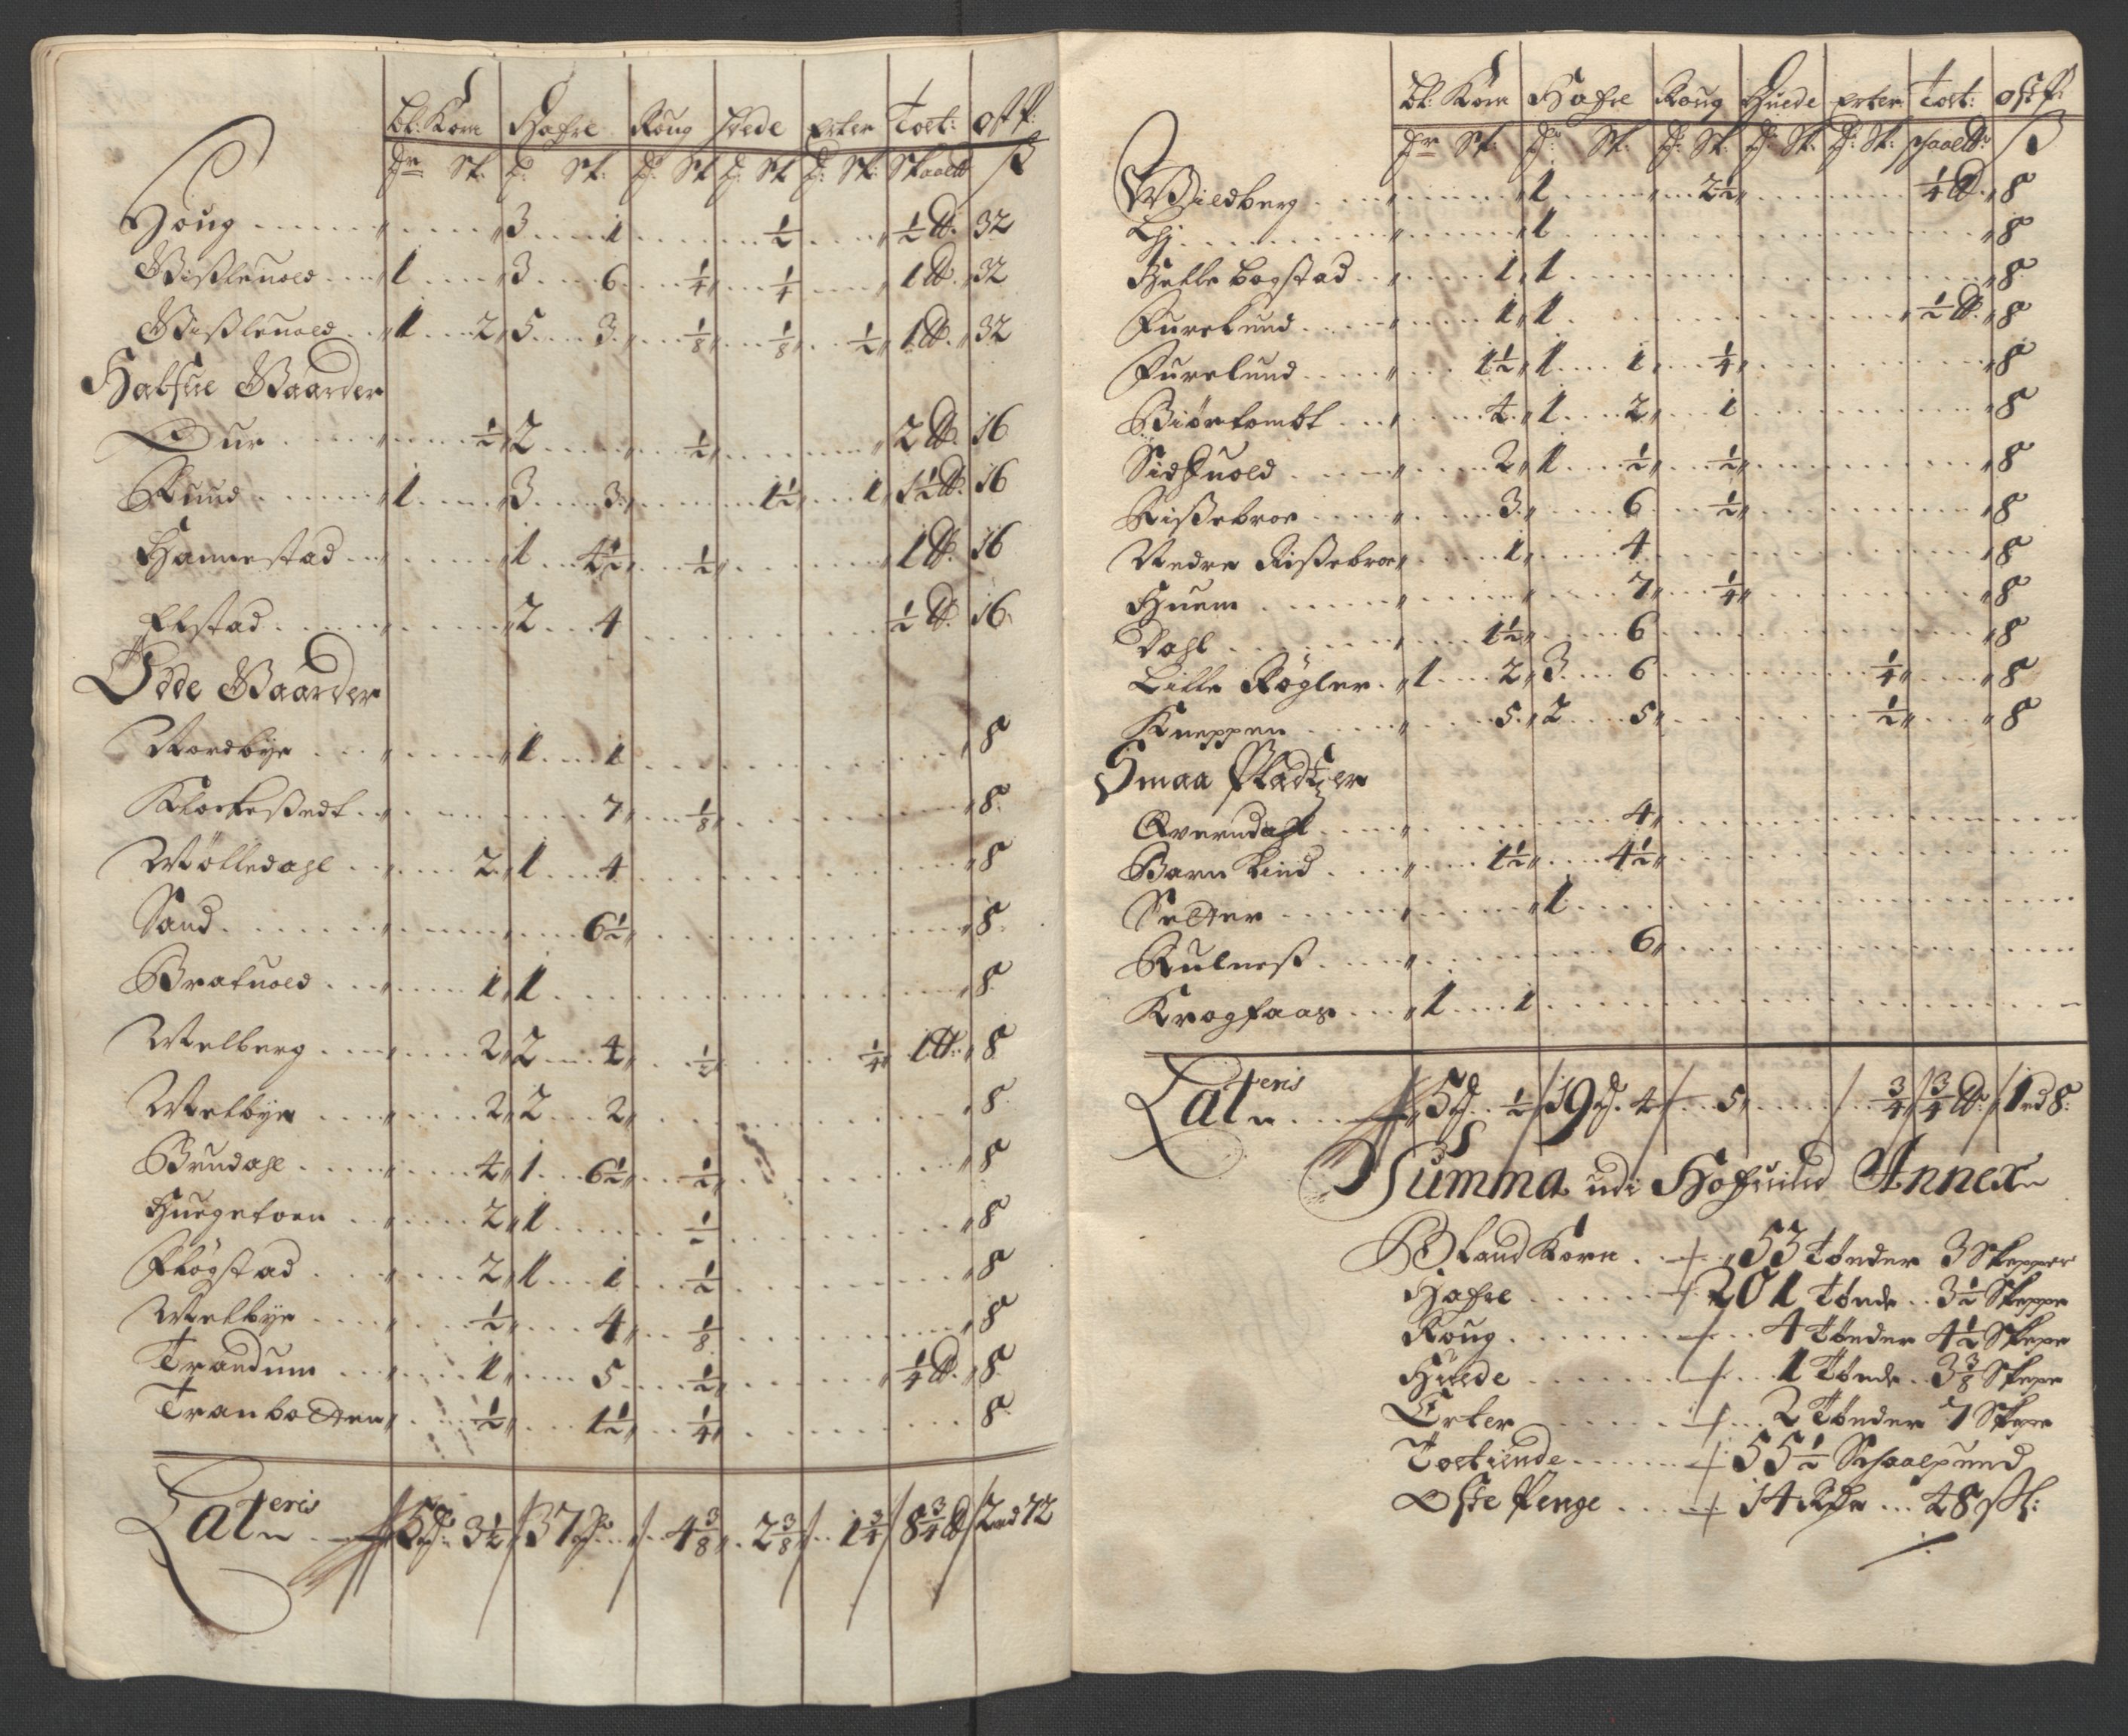 Bl: Korn Hafre Roug Hvede Erter Tost: Ost p:
Tr Sk: T: Sk: T: Sk T: Sk T: Sk: Skaal℔ ß
Houg " " 3 1 ½ " ½ ℔. 32
Gißleuold " 1 " 3 6 ¼ " ¼ " 1 ℔. " 32
Gißleuold " 1 2 " 5 3 " ⅛ " ⅛ " ½ " 1 ℔. " 32
Halfue Gaarder
Dur " ½ " 2 " ½ " " 2 ℔. 16
Ruud " 1 " 3 3 " 1½ " 1 " 1½ ℔. 16
Hannestad " " 1 4½ " ½ " " 1 ℔. 16
Elstad " " 2 4 " ½ ℔. 16
Øde Gaarder
Nordbye " " 1 1 " 8
Klockeßedt " 7 " ⅛ " " 8
Mølledahl " 2 " 1 4 " 8
Sand " " 6½ " " 8
Bratuold " 1 " 1 " 8
Melberg " 2 " 2 4 " ½ " ¼ " 1 ℔: " 8
Melbye " 2 " 2 2 " " 8
Brudahl " 4 " 1 6½ " ½ " " 8
Huegetoen " 2 " 1 ½ " 8
Fløgstad " 2 " 1 1 ½ " " 8
Melbye " ½ " 4 " ⅛ " 8
Trandum " 1 " 5 ½ " " ¼ ℔. " 8
Tranbotten " ½ " 1½ " ¼ " 8
Lateris 5 T: 3½ / 37 T: / 4⅜ " 2⅜ / 1¾ / 8¾ ℔ / 2 rd 72
Bl: Korn Hafre Roug Huede Erter Tost: Ost p:
Tr Sk: T: Sk: T: Sk: T: Sk: T: Sk: Schaal℔: ß
Wildberg " " 1 2½ " ¼ ℔. " 8
Lhj " " 1 " 8
Helle bogstad " 1 " 1 " 8
Furulund " 1 " 1 " ½ ℔. " 8
Furulund " 1½ " 1 1 " ¼ " " 8
Biørtombt " 4 " 1 2 " 1 " 8
Sidsuold " 2 " 1 ½ " ½ " " 8
Rißebroe " 3 " 6 ½ " " 8
Nedre Rißebroe " 1 " 4 " 8
Huem " " 7 " ¼ " " 8
Dahl " 1½ " 6 " 8
Lille Røgler " 1 2 " 3 6 ¼ " " 8
Kneppen " 5 " 2 5 " ½ " " 8
Smaa Pladtzer
Qverndahl " 4 "
Barn Lind " 1½ " 4½ "
Setter " " 1
Rulneß " 6 "
Krogfaas " 1 1
Lateris 5 T. ½ / 19 T. 4 / 5 " / ¾ / ¾ ℔. / 1 rd 8:
Summa udi Hofuind Annex
Bland Korn 53 tønder 3 Skepper
Hafre 201 tønde 3½ Skeppe
Roug 4 tønder 4½ Skepe
Huede 1 tønde 3⅜ Skepe
Erter 2 tønder 7 Skepe
Tostiende 55½ Schaalpund
Oste Penge 14 Rdr 48 ßk: